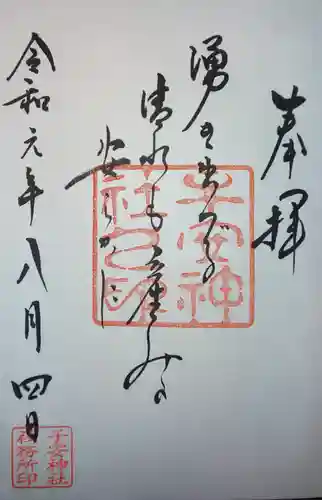 奉拝
湧き出づる
清水も産み
安らかに
令和元年八月四日
子安神
子安神社
社務所印